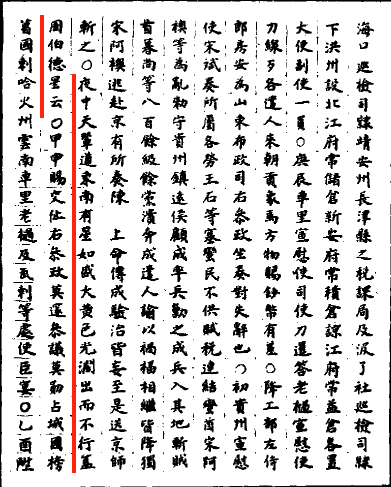 海口巡檢司隸靖安州長津縣之稅課局及渡了社巡檢司隸
下洪州設北江府常儲倉新安府常積倉諒江府常益倉各置
大使副使一員○庚辰車里宣慰使司使刀暹答老撾宣慰使
刀線歹各遣人來朝貢象馬方物賜鈔幣有差○降工部左侍
郎房安為山東布政司右參政坐奏對失辭也○初貴州宣慰
使宋斌奏所屬各勞王石等寨蠻民不供賦稅連結蠻酋宋阿
襖等為亂勑守貴州鎮遠侯顧成率兵勦之成兵入其地斬賊
首尚等八百餘級餘黨潰奔成遣人諭以禍福相繼皆降獨
宋阿襖逃赴京有所奏陳 上命傳成驗治皆妄至是送京師
斬之○夜中天輦道東南有星如盞大黃色光潤出而不行蓋
周伯德星云○甲申賜交阯右參政莫邃參議莫勛占城國榜
葛國剌哈火州雲南車里老撾及瓦剌等處使臣宴○乙酉陞